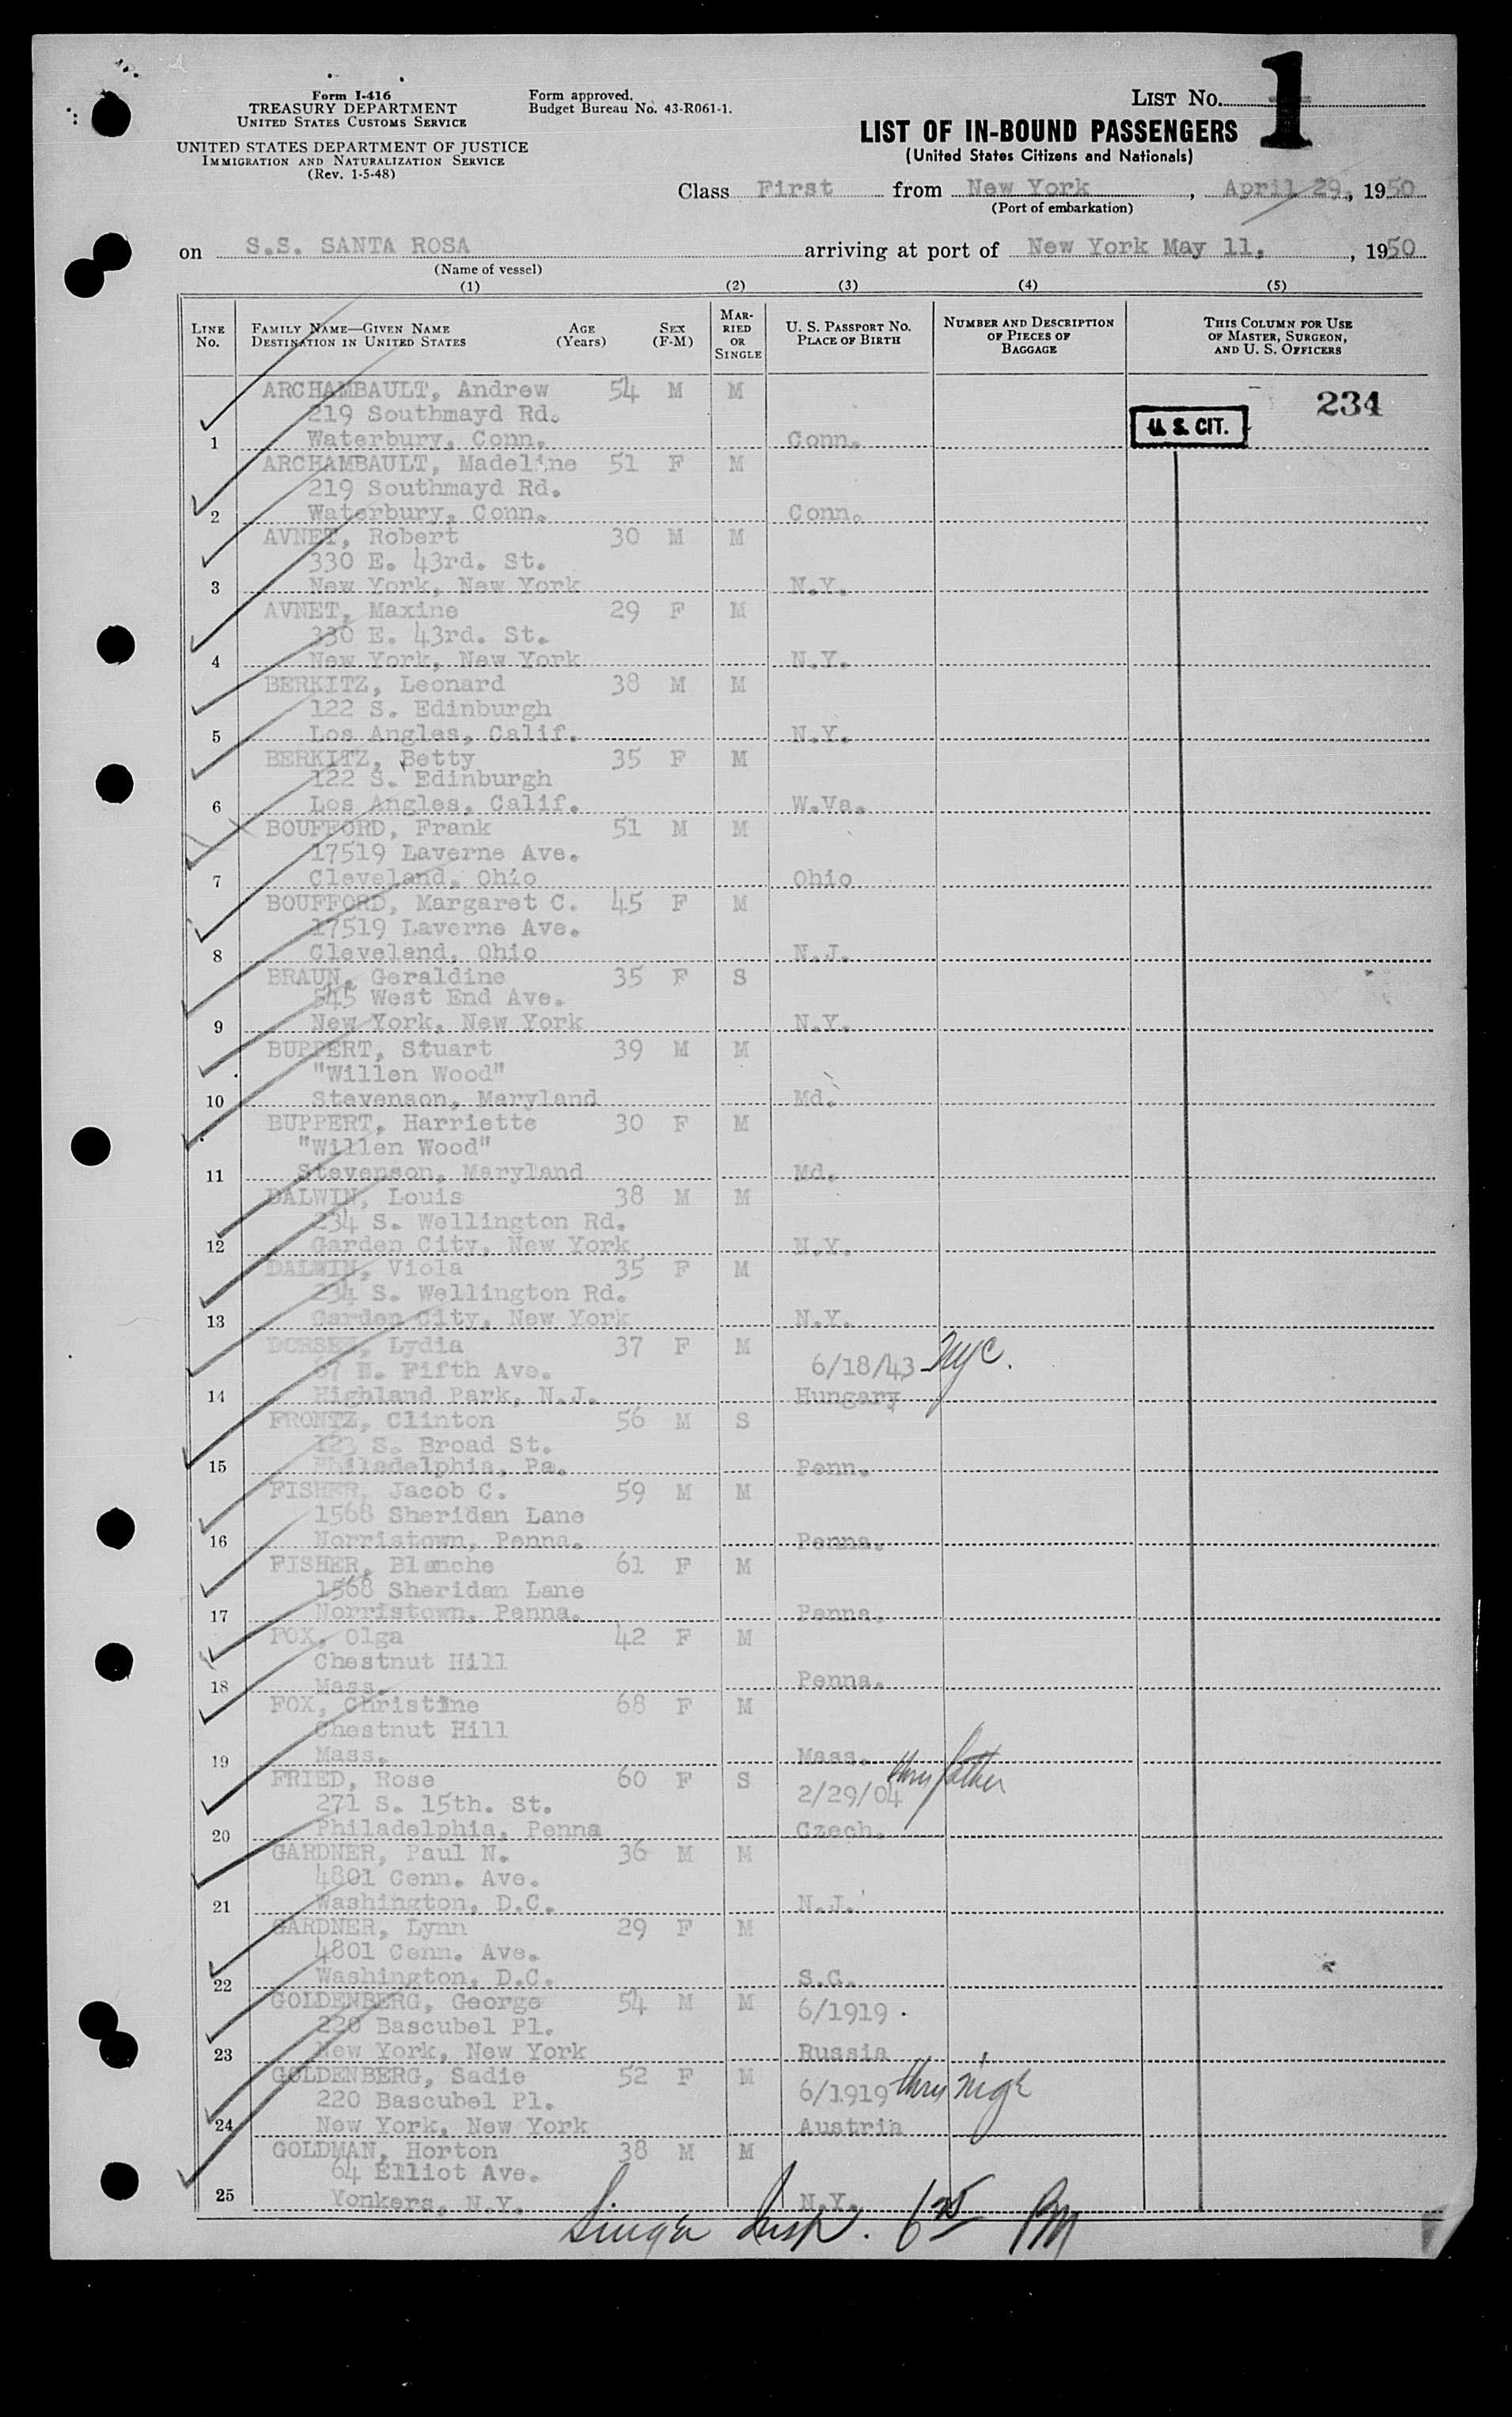 Form I-416
TREASURY DEPARTMENT
UNITED STATES CUSTOMS SERVICE
UNITED STATES DEPARTMENT OF JUSTICE
IMMIGRATION AND NATURALIZATION SERVICE
(Rev. 1-5-48)
Form approved.
Budget Bureau No. 43-R061-1.
LIST NO. 1
LIST OF IN-BOUND PASSENGERS
(United States Citizens and Nationals)
Class First from New York, April 29, 1950
(Port of embarkation)
on S.S. SANTA ROSA arriving at port of New York May 11, , 1950
(Name of vessel)
(1) (2) (3) (4) (5)
LINE No. FAMILY NAME—GIVEN NAME DESTINATION IN UNITED STATES AGE (Years) SEX (F-M) MARRIED OR SINGLE U. S. PASSPORT NO. PLACE OF BIRTH NUMBER AND DESCRIPTION OF PIECES OF BAGGAGE THIS COLUMN FOR USE OF MASTER, SURGEON, AND U. S. OFFICERS
ARCHAMBAULT, Andrew 54 M M 234
219 Southmayd Rd. U. S. CIT.
1 Waterbury, Conn. Conn.
ARCHAMBAULT, Madeline 51 F M
219 Southmayd Rd.
2 Waterbury, Conn. Conn.
AVNET, Robert 30 M M
330 E. 43rd. St.
3 New York, New York N.Y.
AVNET, Maxine 29 F M
330 E. 43rd. St.
4 New York, New York N.Y.
BERKITZ, Leonard 38 M M
122 S. Edinburgh
5 Los Angles, Calif. N.Y.
BERKITZ, Betty 35 F M
122 S. Edinburgh
6 Los Angles, Calif. W.Va.
BOUFFORD, Frank 51 M M
17519 Laverne Ave.
7 Cleveland, Ohio Ohio
BOUFFORD, Margaret C. 45 F M
17519 Laverne Ave.
8 Cleveland, Ohio N.J.
BRAUN, Geraldine 35 F S
545 West End Ave.
9 New York, New York N.Y.
BUPPERT, Stuart 39 M M
"Willen Wood"
10 Stevenson, Maryland Md.
BUPPERT, Harriette 30 F M
"Willen Wood"
11 Stevenson, Maryland Md.
DALWIN, Louis 38 M M
234 S. Wellington Rd.
12 Garden City, New York N.Y.
DALWIN, Viola 35 F M
234 S. Wellington Rd.
13 Garden City, New York N.Y.
DORSEN, Lydia 37 F M
67 N. Fifth Ave. 6/18/43 NYC.
14 Highland Park, N.J. Hungary
FRONTZ, Clinton 56 M S
123 S. Broad St.
15 Philadelphia, Pa. Penn.
FISHER, Jacob C. 59 M M
1568 Sheridan Lane
16 Norristown, Penna. Penna.
FISHER, Blanche 61 F M
1568 Sheridan Lane
17 Norristown, Penna. Penna.
FOX, Olga 42 F M
Chestnut Hill
18 Mass. Penna.
FOX, Christine 68 F M
Chestnut Hill
19 Mass. Mass.
FRIED, Rose 60 F S
271 S. 15th. St. 2/29/04 thru father
20 Philadelphia, Penna Czech.
GARDNER, Paul N. 36 M M
4801 Cenn. Ave.
21 Washington, D.C. N.J.
GARDNER, Lynn 29 F M
4801 Cenn. Ave.
22 Washington, D.C. S.C.
GOLDENBERG, George 54 M M
220 Bascubel Pl. 6/1919
23 New York, New York Russia
GOLDENBERG, Sadie 52 F M
220 Bascubel Pl. 6/1919 thru
24 New York, New York Austria
GOLDMAN, Horton 38 M M
64 Elliot Ave.
25 Yonkers, N.Y. N.Y.
Insp. PM